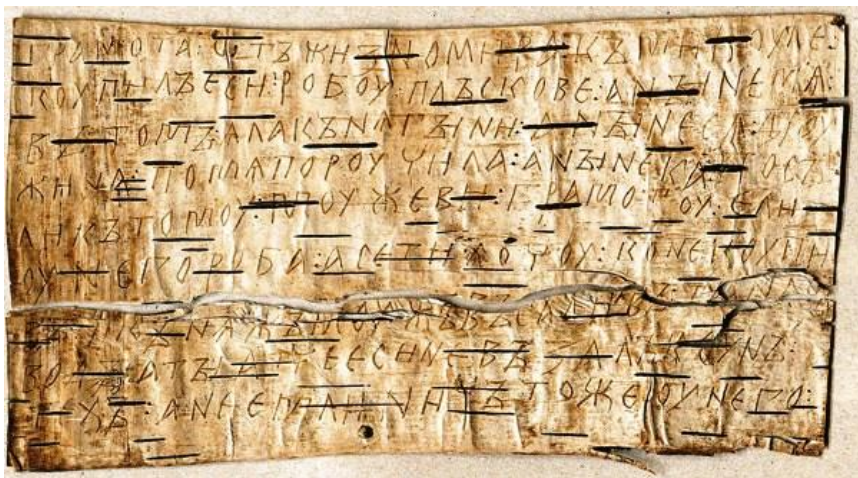 ГРАМОТА : ѠТЪ ЖИЗНОМИРА КЪ МИКОУЛЕ :
КОУПИЛЪ ЕСИ : РОБОУ : ПЛЪСКОВЕ : А НЫНЕ МѦ :
ВЪ ТОМЪ : ѦЛА КЪНѦГЫНИ : А НЫНЕ СѦ ДРОУ
ЖИНА : ПО МѦ ПОРОУЧИЛА : А НЫНЕ КА : ПОСЪ
ЛИ КЪ ТОМОУ : МОУЖЕВИ : ГРАМОТОУ : ЕЛИ
ОУ НЕГО РОБА : А СЕ ТИ ХОЧОУ : КОНЕ КОУПИ
ВЪ : И КЪНѦЖЪ МОУЖЪ ВЪСАДИВЪ : ТА НА СЪ
ВОДЫ : А ТЫ АТЧЕ ЕСИ НЕ ВЪЗАЛЪ КОУНЪ :
ТЕХЪ : А НЕ ЕМЛИ : НИЧЪТО ЖЕ ОУ НЕГО :